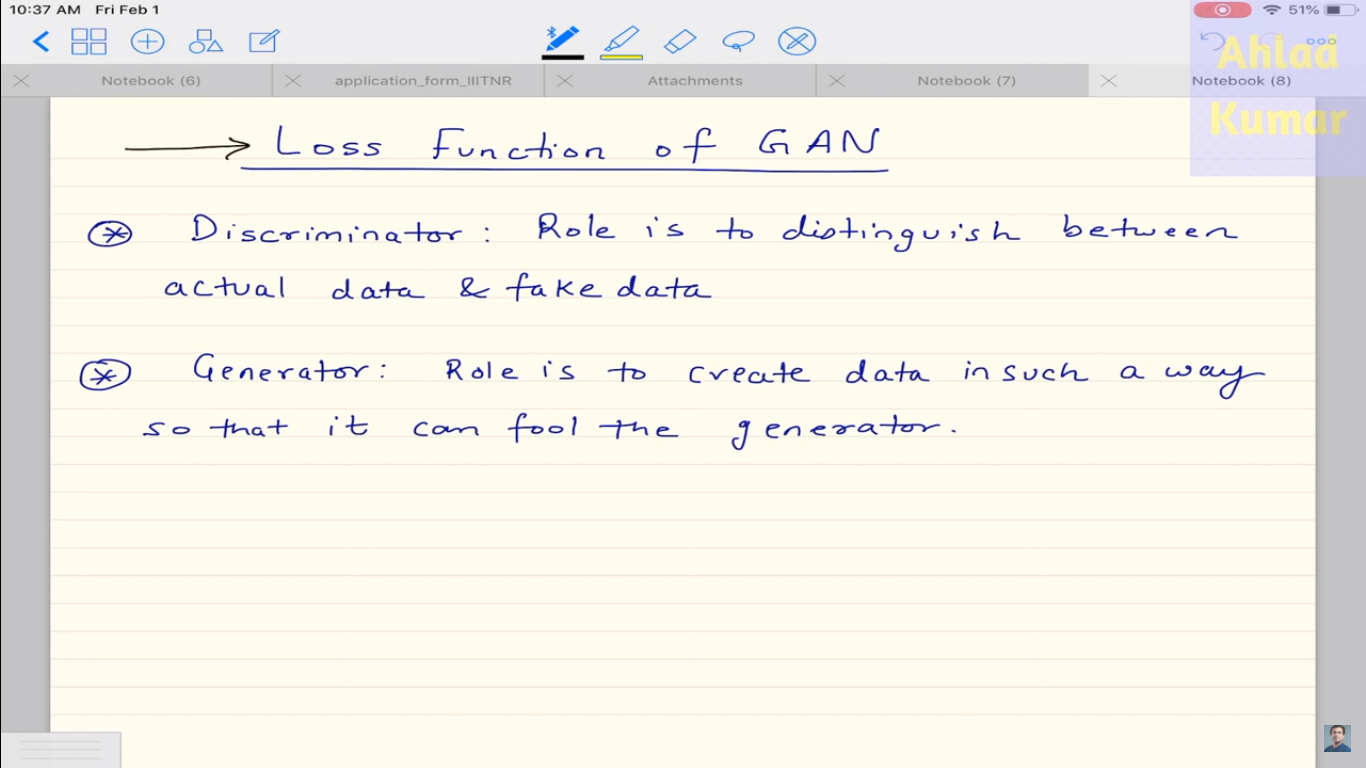 10:37 AM Fri Feb 1
51%
Notebook (6)
application_form_IIITNR
Attachments
Notebook (7)
Notebook (8)
Ahlad
Kumar
Loss Function of GAN
Discriminator: Role is to distinguish between
actual data & fake data
Generator: Role is to create data in such a way
so that it can fool the generator.